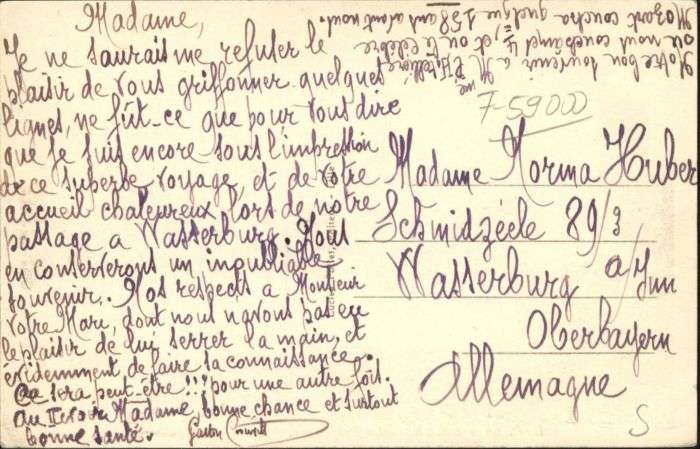 Madame,
Je ne saurais me refuser le
plaisir de vous griffonner quelques
lignes, ne fût-ce que pour vous dire
que je suis encore sous l'impression
de ce superbe voyage, et de votre
accueil chaleureux lors de notre
passage a Wasserburg. Nous
en conserverons un inoubliable
souvenir. Nos respects a Monsieur
votre Mari, dont nous n'avons pas eu
le plaisir de lui serrer la main, et
évidemment de faire sa connaissance.
Ça sera peut-être!!! pour une autre fois.
Au revoir Madame, bonne chance et surtout
bonne santé.
Gaston
Notre bon souvenir a M. &
où nous couchames, et où le célèbre
Mozart coucha quelque 158 ans avant nous.
7-59000
Madame Norma Huber
89/3
Wasserburg a/Inn
Oberbayern
Allemagne
S